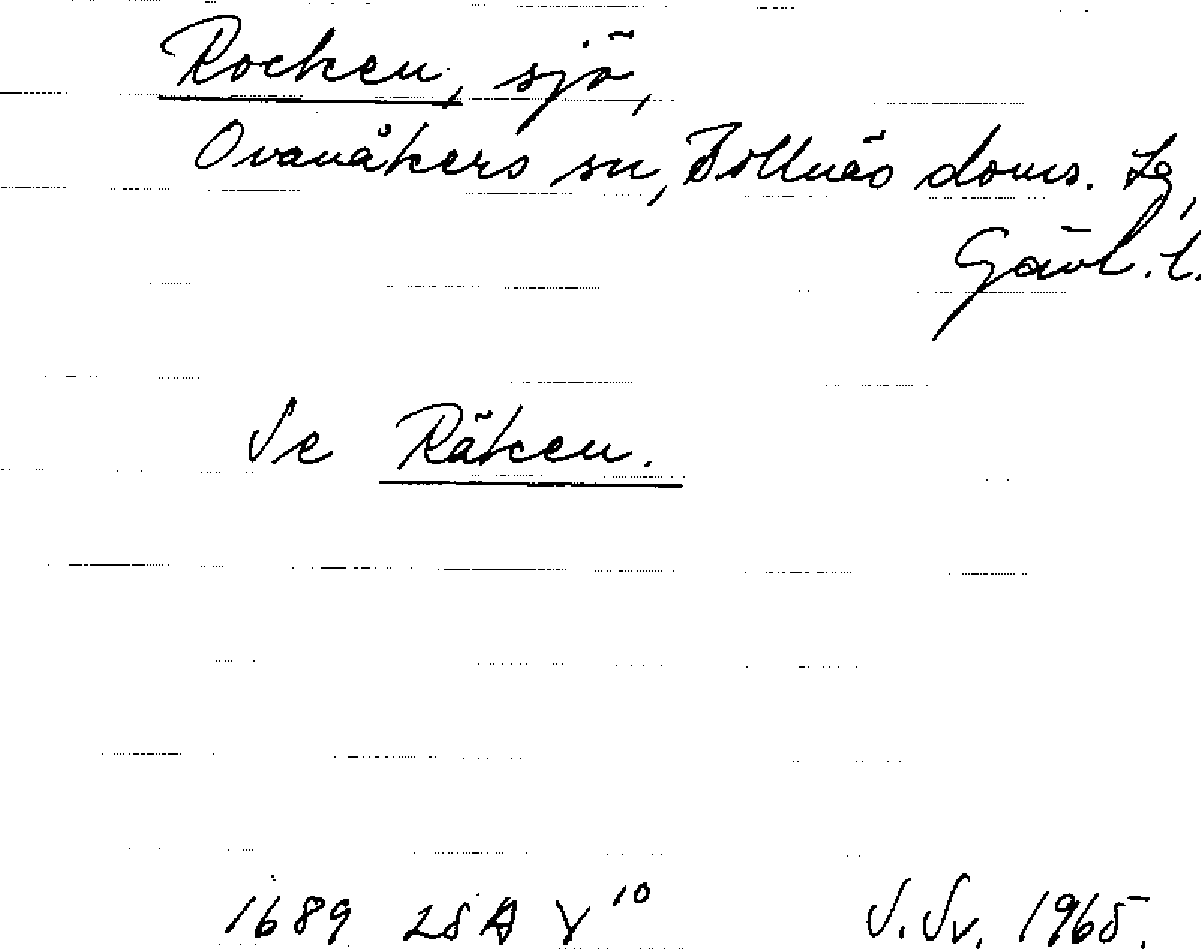 Rocken, sjö,
Ovanåkers sn, Bollnäs doms. Lg,
Gävl. l.
Se Räken.
1689 LSA Y 10 S. Sv. 1965.